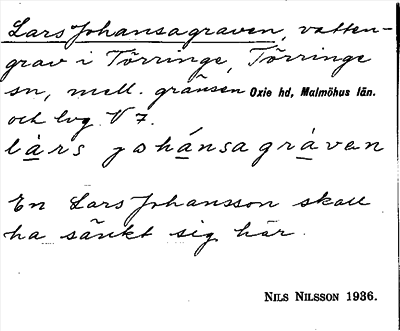 Lars Johansagraven, vatten-
grav i Törringe, Törringe
sn, mell. gränsen Oxie hd, Malmöhus län.
och lvg V 7.
làrs johánsagràven
En Lars Johansson skall
ha sänkt sig här.
NILS NILSSON 1936.